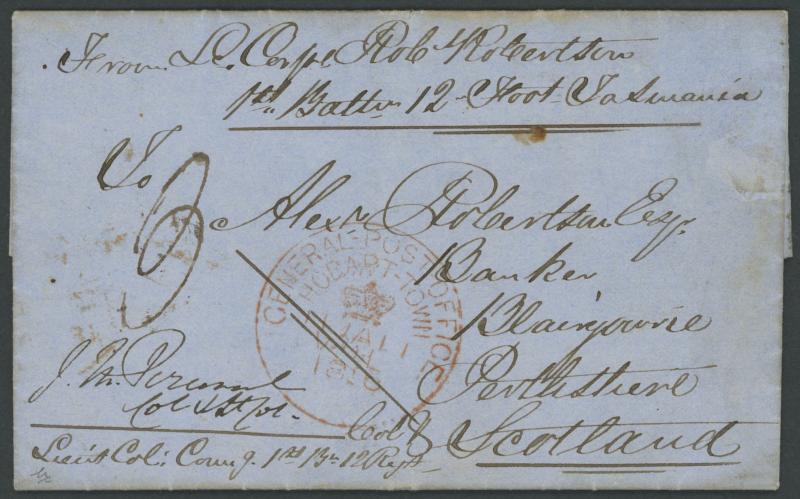 From L. Corpl Robt Robertson
1st Battn 12 Foot Tasmania
To
3
Alexr Robertson Esqr
Banker
Blairgowrie
Perthshire
Scotland
GENERAL-POST-OFFICE
HOBART-TOWN
JA 11
J. M. Perceval
Col & Lt Col
Lieut Col: Comg. 1st Bn 12 Regt